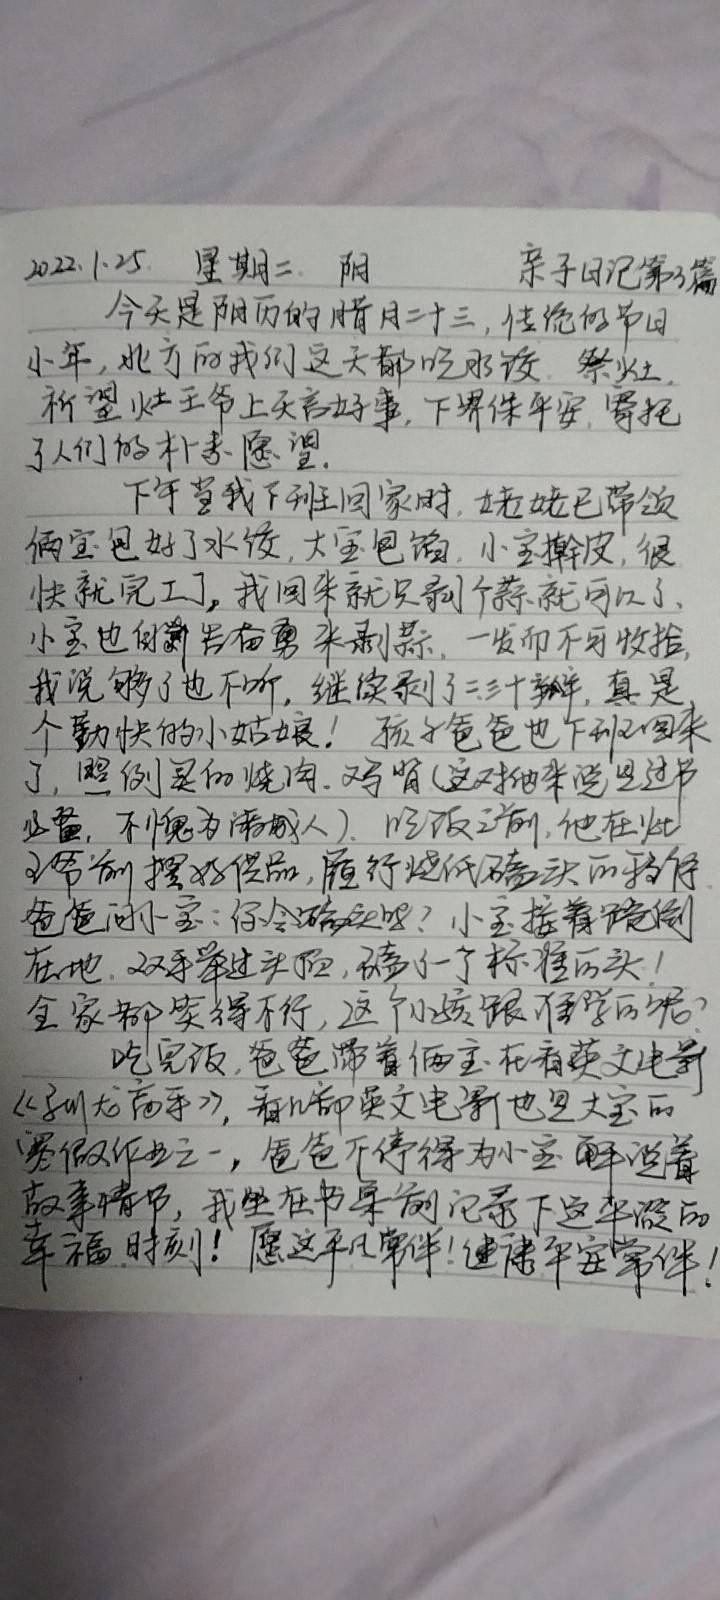 2022.1.25. 星期二 阴 亲子日记第3篇
今天是阴历的腊月二十三，传统的节日
小年，北方的我们这天都吃水饺、祭灶，
祈望灶王爷上天言好事，下界保平安，寄托
了人们的朴素愿望。
下午当我下班回家时，姥姥已带领
俩宝包好了水饺，大宝包馅，小宝擀皮，很
快就完工了。我回来就只剥个蒜就可以了、
小宝也自告奋勇来剥蒜，一发而不可收拾，
我说够了也不听，继续剥了二三十瓣，真是
个勤快的小姑娘！孩子爸爸也下班回来
了，照例买的烧肉、鸡背（这对他来说是过节
必备，不愧为人）．吃饭之前，他在灶
王爷前摆好供品，履行烧纸磕头的
爸爸问小宝：你会磕头吗？小宝接着跪倒
在地，双手举过头顶，磕了一个标准的头！
全家都笑得不行，这个小孩跟谁学的呢？
吃完饭，爸爸带着俩宝在看英文电影
《驯龙高手》，看几部英文电影也是大宝的
寒假作业之一，爸爸不停得为小宝解说着
故事情节，我坐在书桌前记录下这平淡的
幸福时刻！愿这平凡常伴！健康平安常伴！